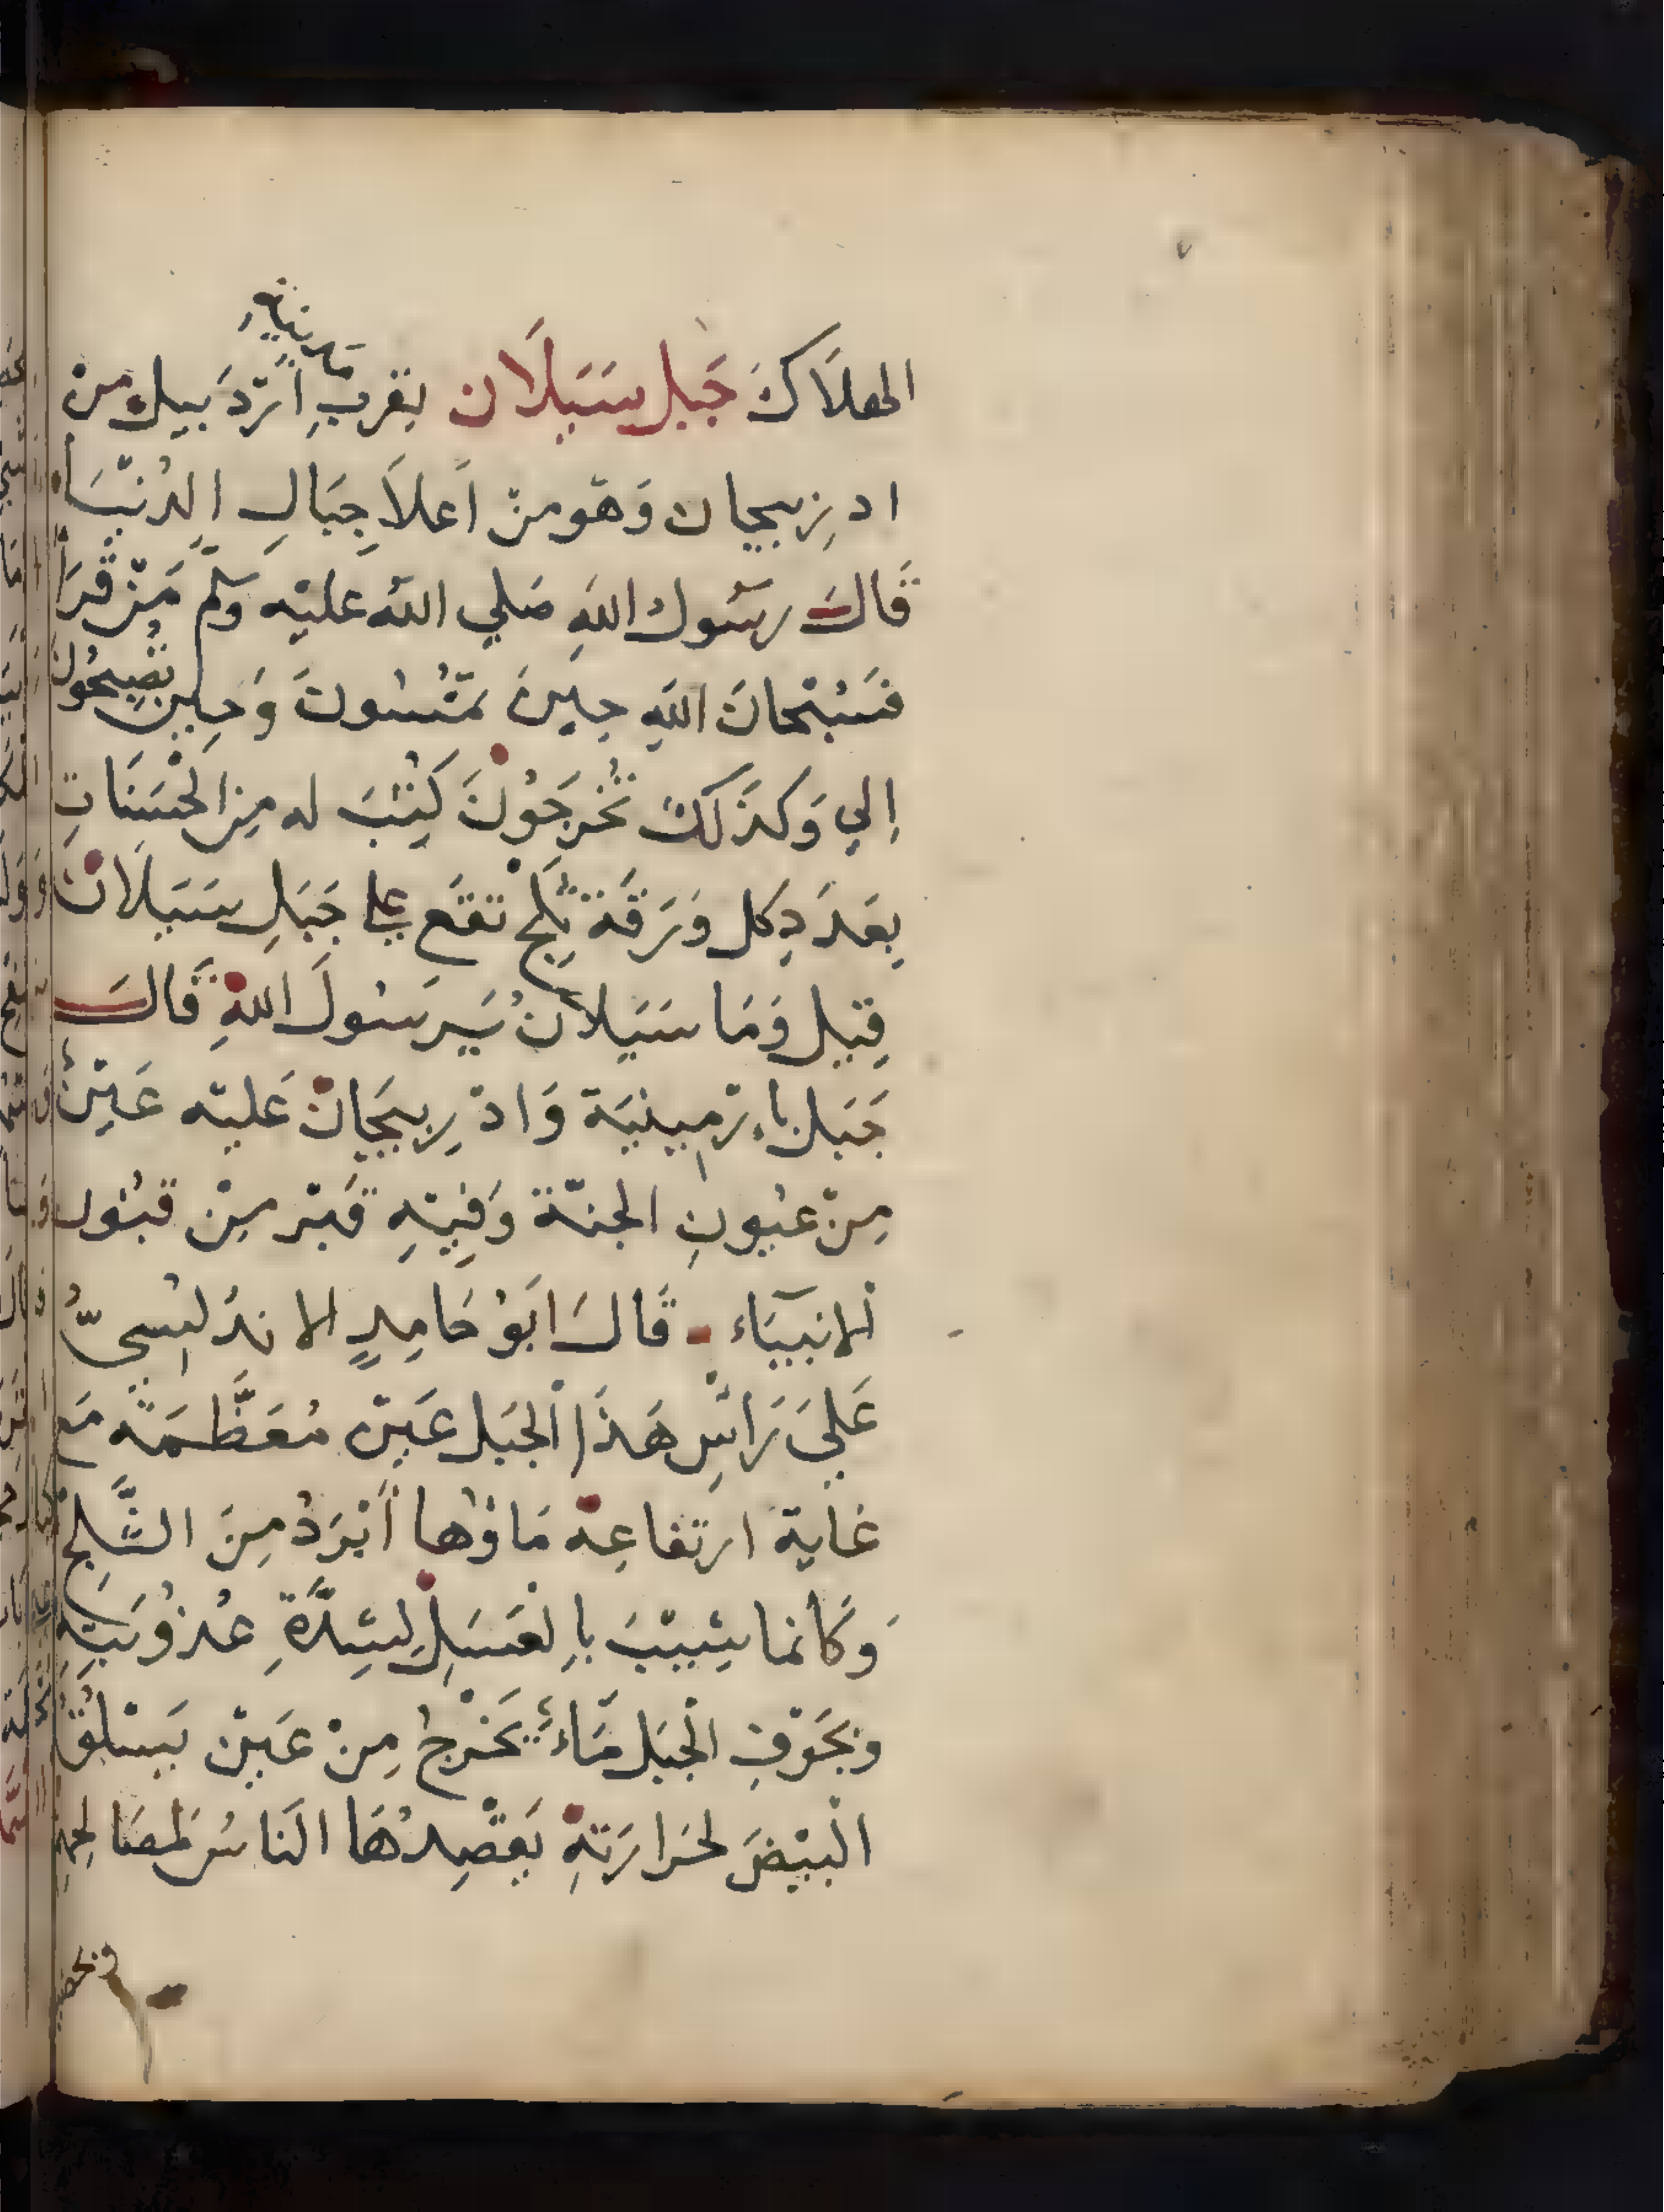 مدينة
الهلَاكَ جَبل سَبَلَان بقربِ اَرْدَبيل من
ادرِبيجان وَهْو منْ اَعلاَ جِبَالِ الدُنْيَا
قَالَ رسَول اللهِ صَلي اللهُ عليْه وسَلمَّ مَنْ قَرَأَ
فَسَبْحانَ اللهِ حِينَ تمْسُونَ وَحِين تُصْبِحُونَ
إلي وَكذَلكَ تُخرَجَوْنَ كُتِبَ له مِن الحْسَنَاتِ
بِعَدَدِ كل وَرَقَة ثَلجْ تقَع علي جَبَلِ سَبَلَانْ
قِيل وَمَا سَبَلانُ يَرسُولَ اللهِ قَالَ
جَبَل بإرْمِينيَة وَادْرِبيجَانْ عَليْه عَيْنٌ
مِنْ عيُونِ الجنّة وَفِيْهِ قَبْر مِنْ قبُور
اْلانبيَاء قَالَ ابَوْ حَامِدٍ الاندَلُسيُّ
عَليَ رَاسِ هَذَا اْلجَبل عَيْن مُعَظَّمَة مَع
غايَة ارتفاعِهْ مَاؤُها أَبْرَدُ مِنَ الثَّلجْ
وَكَأنما شِيْبَ باِلعَسَلِ لِشِدَّةِ عُذوُبَتِهِ
وبجَوْفِ الْجَبل مَاءٌ يَخْرجُ مِنْ عَيْن يَسْلقُ
الْبَيْضَ لحَرارَتهِ يَقْصِدُهَا الناسُ لمصَالحِهِ
وبحضيـ